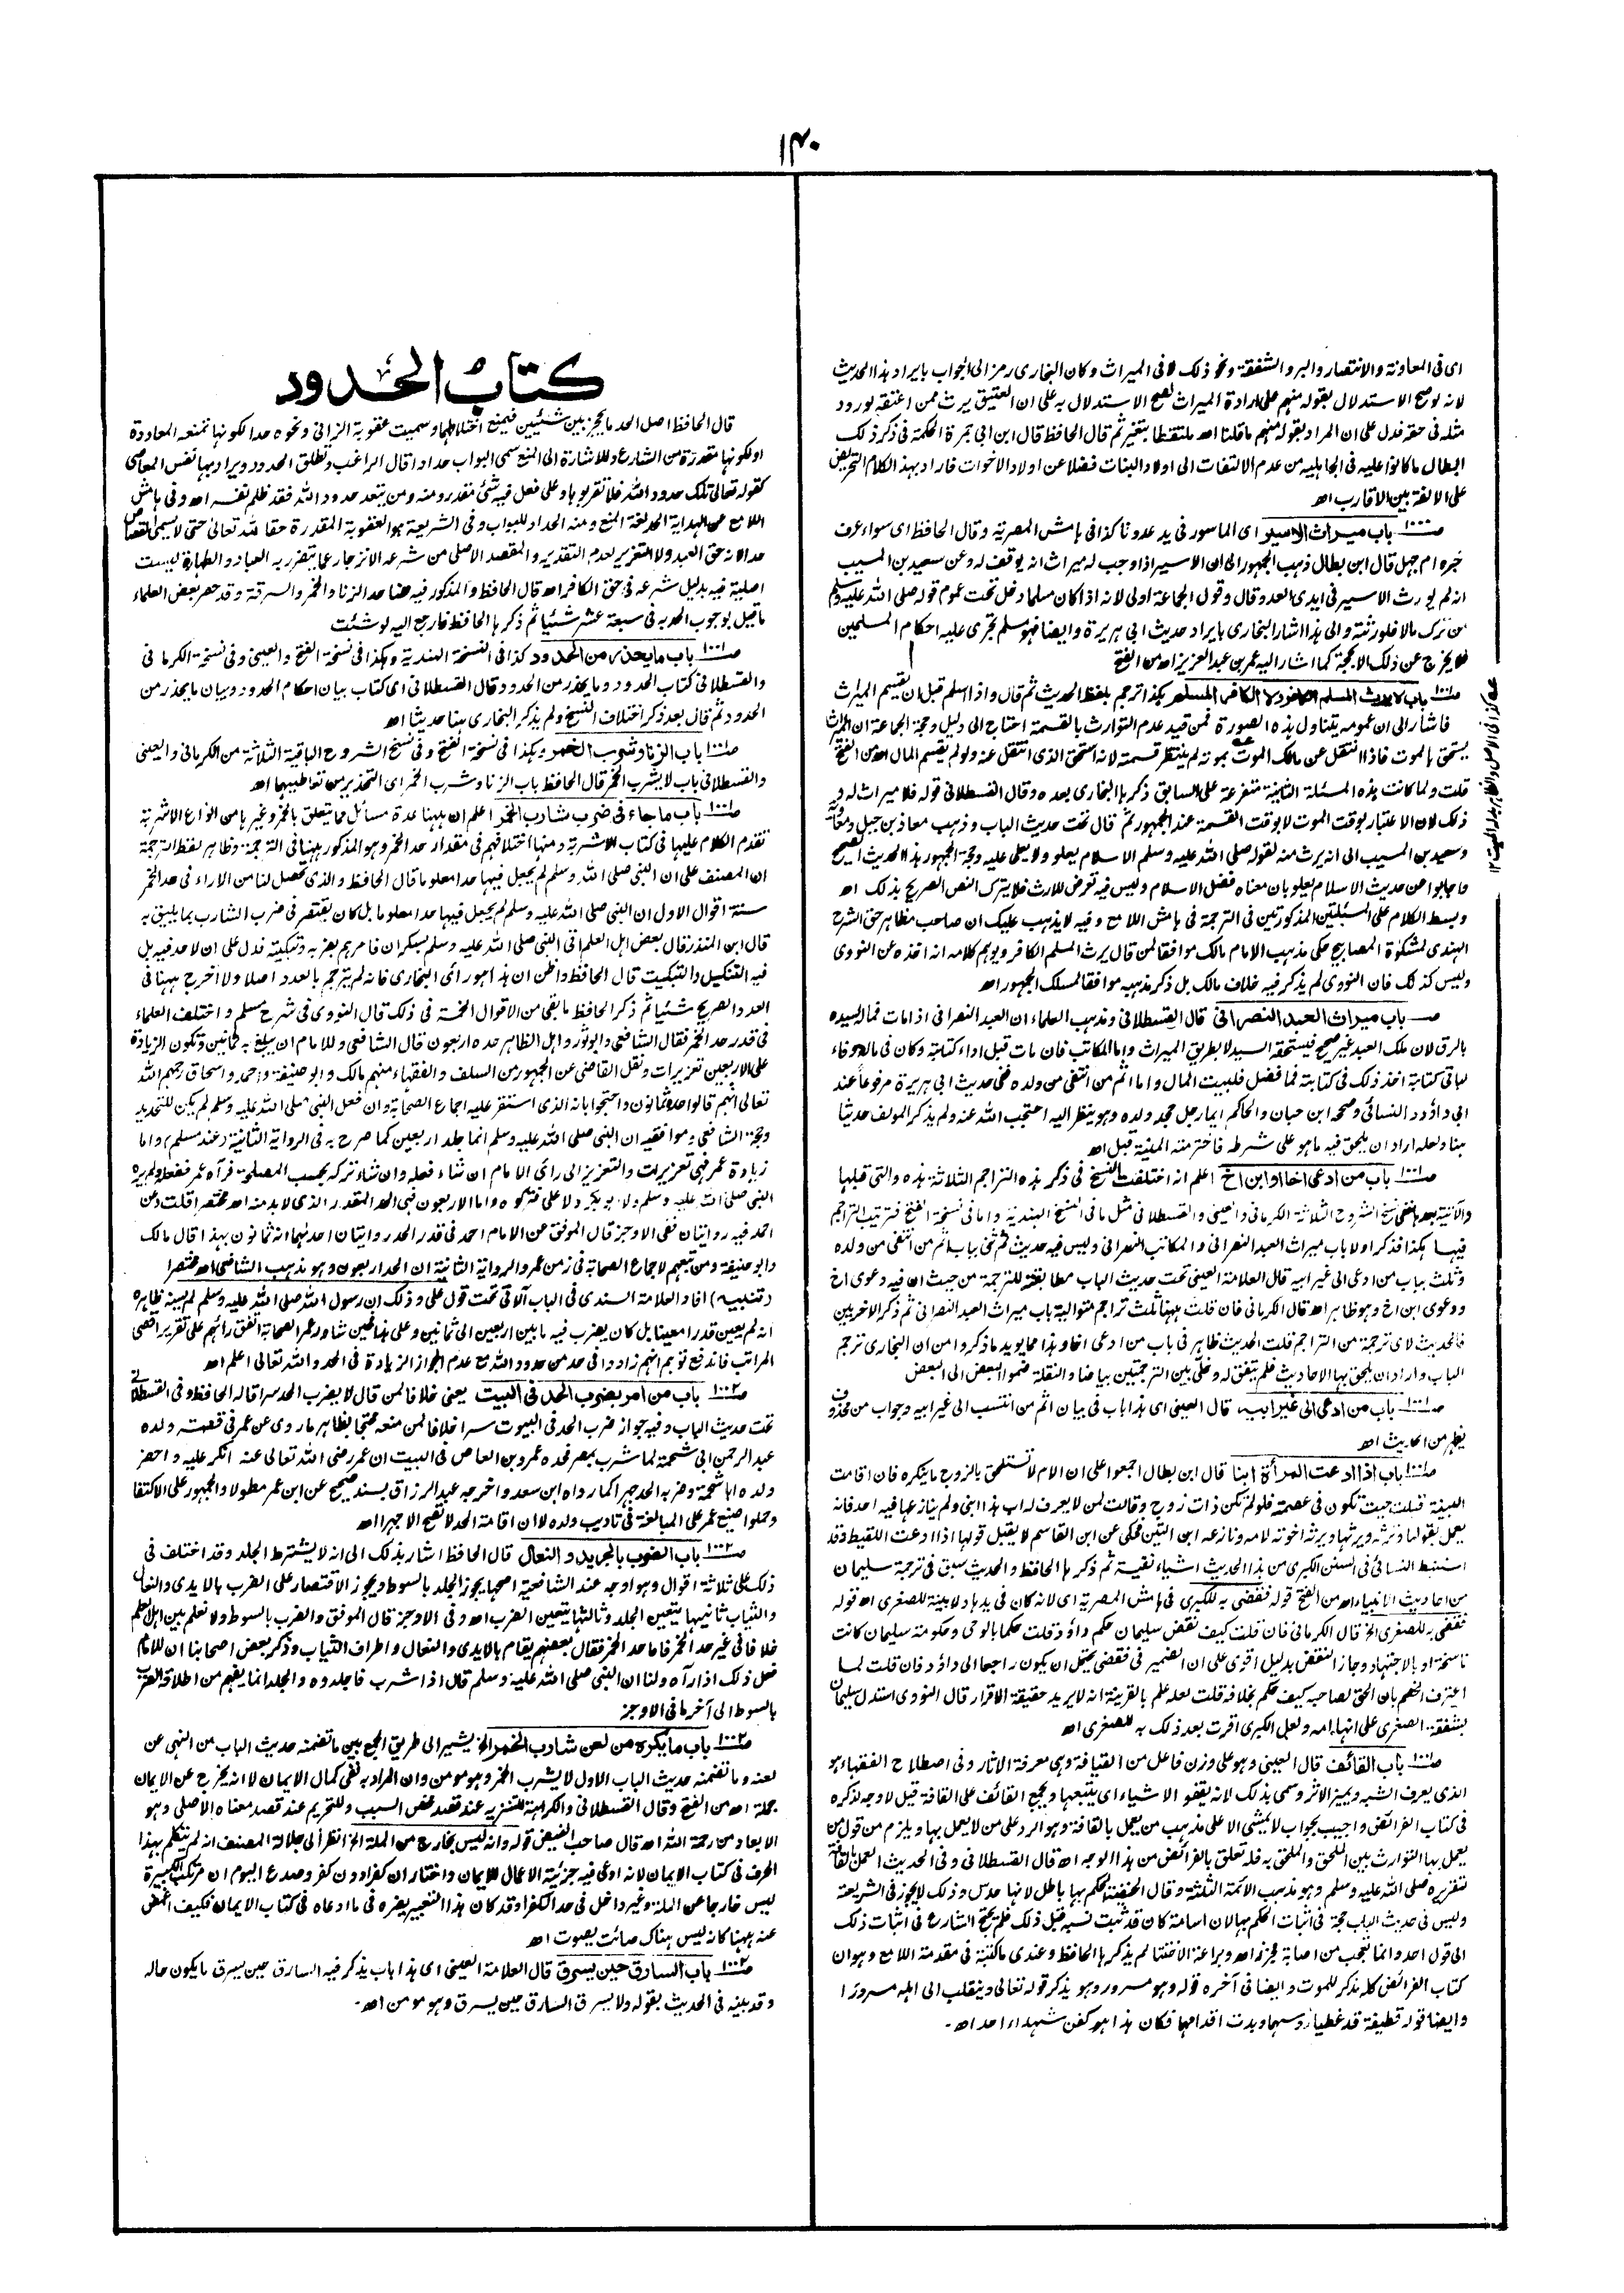 ۱۴۰
اى فى المعاونة والانتصار والبر والشفقة ونحو ذلك لا فى الميراث وكان البخارى رمز الى الجواب بايراد هذا الحديث
لانه لو صح الاستدلال بقوله منهم على ارادة الميراث لصح الاستدلال به على ان العتيق يرث ممن اعتقه لورود
مثله فى حقه فدل على ان المراد بقوله منهم ما قلنا اه ملتقطا بتغير ثم قال الحافظ قال ابن ابى جمرة الحكمة فى ذكر ذلك
ابطال ما كانوا عليه فى الجاهلية من عدم الالتفات الى اولاد البنات فضلا عن اولاد الاخوات فاراد بهذا الكلام التحريض
على الالفة بين الاقارب اه
صـ۱۰۰۰ باب ميراث الاسير اى الماسور فى يد عدونا كذا فى هامش المصرية وقال الحافظ اى سواء عرف
خبره ام جهل قال ابن بطال ذهب الجمهور الى ان الاسير اذا وجب له ميراث انه يوقف له وعن سعيد بن المسيب
انه لم يورث الاسير فى ايدى العدو قال وقول الجماعة اولى لانه اذا كان مسلما دخل تحت عموم قوله صلى الله عليه وسلم
من ترك مالا فلورثته والى هذا اشار البخارى بايراد حديث ابى هريرة وايضا فهو مسلم تجرى عليه احكام المسلمين
فلا يخرج عن ذلك الا بحجة كما اشار اليه عمر بن عبد العزيز اه من الفتح
صـ۱۰۰۱ باب لا يرث المسلم الكافر ولا الكافر المسلم هكذا ترجم بلفظ الحديث ثم قال واذا اسلم قبل ان يقسم الميراث
فاشار الى ان عمومه يتناول هذه الصورة فمن قيد عدم التوارث بالقسمة احتاج الى دليل وحجة الجماعة ان الميراث
يستحق بالموت فاذا انتقل عن مالك الموت عه بموته لم ينتظر قسمته لانه استحق الذى انتقل عنه ولو لم يقسم المال اه من الفتح
قلت ولما كانت هذه المسئلة الثانية متفرعة على السابق ذكرها البخارى بعده وقال القسطلانى قوله فلا ميراث له
ذلك لان الاعتبار بوقت الموت لا بوقت القسمة عند الجمهور ثم قال تحت حديث الباب وذهب معاذ بن جبل ومعاوية
وسعيد بن المسيب الى انه يرث منه لقوله صلى الله عليه وسلم الاسلام يعلو ولا يعلى عليه وحجة الجمهور هذا الحديث الصحيح
واجابوا عن حديث الاسلام يعلو بان معناه فضل الاسلام وليس فيه تعرض للارث فلا يترك النص الصريح بذلك اه
وبسط الكلام على المسئلتين المذكورتين فى الترجمة فى هامش اللامع وفيه لا يذهب عليك ان صاحب مظاهر حق الشرح
الهندى لمشكوة المصابيح حكى مذهب الامام مالك موافقا لمن قال يرث المسلم الكافر ويوهم كلامه انه اخذه عن النووى
وليس كذلك فان النووى لم يذكر فيه خلاف مالك بل ذكر مذهبه موافقا لمسلك الجمهور اه
صـ باب ميراث العبد النصرانى قال القسطلانى ومذهب العلماء ان العبد النصرانى اذا مات فماله لسيده
بالرق لان ملك العبد غير صحيح فيستحقه السيد لا بطريق الميراث واما المكاتب فان مات قبل اداء كتابته وكان فى ماله وفاء
لباقى كتابته اخذ ذلك فى كتابته فما فضل فلبيت المال واما اثم من انتفى من ولده ففى حديث ابى هريرة مرفوعا عند
ابى داؤد والنسائى وصححه ابن حبان والحاكم ايما رجل جحد ولده وهو ينظر اليه احتجب الله عنه ولم يذكر المولف حديثا
هنا ولعله اراد ان يلحق فيه ما هو على شرطه فاخترمته المنية قبل اه
صـ۱۰۰۱ باب من ادعى اخا او ابن اخ اعلم انه اختلفت النسخ فى ذكر هذه التراجم الثلاثة هذه والتى قبلها
والآتية بعد ففى نسخ الشروح الثلاثة الكرمانى والعينى والقسطلانى مثل ما فى النسخ الهندية واما فى نسخة الفتح فترتيب التراجم
فيها هكذا فذكر اولا باب ميراث العبد النصرانى والمكاتب النصرانى وليس فيه حديث ثم ثنى بباب اثم من انتفى من ولده
وثلث بباب من ادعى الى غير ابيه قال العلامة العينى تحت حديث الباب مطابقته للترجمة من حيث ان فيه دعوى اخ
ودعوى ابن اخ وهو ظاهر اه قال الكرمانى فان قلت ههنا ثلث تراجم متوالية باب ميراث العبد النصرانى ثم ذكر الاخريين
فالحديث لاى ترجمة من التراجم قلت الحديث ظاهر فى باب من ادعى اخا وهذا مما يويد ما ذكروا من ان البخارى ترجم
الباب واراد ان يلحق بها الاحاديث فلم يتفق له وخلى بين الترجمتين بياضا والنقلة ضموا البعض الى البعض
صـ۱۰۰۱ باب من ادعى الى غير ابيه قال العينى اى هذا باب فى بيان اثم من انتسب الى غير ابيه وجواب من محذوف
يظهر من الحديث اه
صـ۱۰۰۱ باب اذا ادعت المرأة ابنا قال ابن بطال اجمعوا على ان الام لا تستلحق بالزوج ما ينكره فان اقامت
البينة قبلت حيث تكون فى عصمته فلو لم تكن ذات زوج وقالت لمن لا يعرف له اب هذا ابنى ولم ينازعها فيه احد فانه
يعمل بقولها وترثه ويرثها ويرثه اخوته لامه ونازعه ابن التين فحكى عن ابن القاسم لا يقبل قولها اذا ادعت اللقيط وقد
استنبط النسائى فى السنن الكبرى من هذا الحديث اشياء نفيسة ثم ذكرها الحافظ والحديث سبق فى ترجمة سليمان
من احاديث الانبياء اه من الفتح قوله فقضى به للكبرى فى هامش المصرية اى لانه كان فى يدها ولا بينة للصغرى اه قوله
فقضى به للصغرى الخ قال الكرمانى فان قلت كيف نقض سليمان حكم داؤد قلت حكما بالوحى وحكومة سليمان كانت
ناسخة او بالاجتهاد وجاز النقض بدليل اقوى على ان الضمير فى فقضى يحتمل ان يكون راجعا الى داؤد فان قلت لما
اعترف الخصم بان الحق لصاحبه كيف حكم بخلافه قلت لعله علم بالقرينة انه لا يريد حقيقة الاقرار قال النووى استدل سليمان
بشفقة الصغرى على انها امه ولعل الكبرى اقرت بعد ذلك به للصغرى اه
صـ۱۰۰۱ باب القائف قال العينى وهو على وزن فاعل من القيافة وهى معرفة الآثار وفى اصطلاح الفقهاء هو
الذى يعرف الشبه ويميز الاثر وسمى بذلك لانه يقفو الاشياء اى يتتبعها ويجمع القائف على القافة قيل لا وجه لذكره
فى كتاب الفرائض واجيب بجواب لا يمشى الا على مذهب من يعمل بالقافة وهو الرد على من لا يعمل بها ويلزم من قول من
يعمل بها التوارث بين الملحق والملحق به فله تعلق بالفرائض من هذا الوجه اه قال القسطلانى وفى الحديث العمل بالقافة
لتقريره صلى الله عليه وسلم وهو مذهب الائمة الثلثة وقال الحنفية الحكم بها باطل لانها حدس وذلك لا يجوز فى الشريعة
وليس فى حديث الباب حجة فى اثبات الحكم بها لان اسامة كان قد ثبت نسبه قبل ذلك فلم يحتج الشارع فى اثبات ذلك
الى قول احد وانما تعجب من اصابة مجزز اه وبراعة الاختتام لم يذكرها الحافظ وعندى ما كتبته فى مقدمة اللامع وهو ان
كتاب الفرائض كله يذكر للموت وايضا فى آخره قوله وهو مسرور وهو يذكر قوله تعالى وينقلب الى اهله مسرورا
وايضا قوله قطيفة قد غطيا رؤسهما وبدت اقدامهما فكان هذا هو كفن شهداء احد اه۔
عه كذا فى الاصل والظاهر بدله الميت ١٢
كتاب الحدود
قال الحافظ اصل الحد ما يحجز بين شئيين فيمنع اختلاطهما وسميت عقوبة الزانى ونحوه حدا لكونها تمنعه المعاودة
او لكونها مقدرة من الشارع وللاشارة الى المنع سمى البواب حدادا قال الراغب وتطلق الحدود ويراد بها نفس المعاصى
كقوله تعالى تلك حدود الله فلا تقربوها وعلى فعل فيه شئ مقدر ومنه ومن يتعد حدود الله فقد ظلم نفسه اه وفى هامش
اللامع عن الهداية الحد لغة المنع ومنه الحداد للبواب وفى الشريعة هو العقوبة المقدرة حقا لله تعالى حتى لا يسمى القصاص
حدا لانه حق العبد ولا التعزير لعدم التقدير والمقصد الاصلى من شرعه الانزجار عما يتضرر به العباد والطهارة ليست
اصلية فيه بدليل شرعه فى حق الكافر اه قال الحافظ والمذكور فيه هنا حد الزنا والخمر والسرقة وقد حصر بعض العلماء
ما قيل بوجوب الحد به فى سبعة عشر شئيا ثم ذكرها الحافظ فارجع اليه لو شئت
صـ۱۰۰۱ باب ما يحذر من الحدود كذا فى النسخة الهندية وهكذا فى نسخة الفتح والعينى وفى نسخة الكرمانى
والقسطلانى كتاب الحدود وما يحذر من الحدود قال القسطلانى اى كتاب بيان احكام الحدود وبيان ما يحذر من
الحدود ثم قال بعد ذكر اختلاف النسخ ولم يذكر البخارى هنا حديثا اه
صـ۱۰۰۱ باب الزنا وشرب الخمر وهكذا فى نسخة الفتح وفى نسخ الشروح الباقية الثلاثة من الكرمانى والعينى
والقسطلانى باب لا يشرب الخمر قال الحافظ باب الزنا وشرب الخمر اى التحذير من تعاطيهما اه
صـ۱۰۰۱ باب ما جاء فى ضرب شارب الخمر اعلم ان ههنا عدة مسائل مما يتعلق بالخمر وغيرها من انواع الاشربة
تقدم الكلام عليها فى كتاب الاشربة ومنها اختلافهم فى مقدار حد الخمر وهو المذكور ههنا فى الترجمة وظاهر لفظ الترجمة
ان المصنف على ان النبى صلى الله وسلم لم يجعل فيها حدا معلوما قال الحافظ والذى تحصل لنا من الاراء فى حد الخمر
ستة اقوال الاول ان النبى صلى الله عليه وسلم لم يجعل فيها حدا معلوما بل كان يقتصر فى ضرب الشارب بما يليق به
قال ابن المنذر قال بعض اهل العلم اتى النبى صلى الله عليه وسلم بسكران فامرهم بضربه وتبكيته فدل على ان لا حد فيه بل
فيه التنكيل والتبكيت قال الحافظ واظن ان هذا هو رأى البخارى فانه لم يترجم بالعدد اصلا ولا اخرج ههنا فى
العدد الصريح شئيا ثم ذكر الحافظ ما بقى من الاقوال الخمسة فى ذلك قال النووى فى شرح مسلم واختلف العلماء
فى قدر حد الخمر فقال الشافعى وابو ثور واهل الظاهر حده اربعون قال الشافعى وللامام ان يبلغ به ثمانين وتكون الزيادة
على الاربعين تعزيرات ونقل القاضى عن الجمهور من السلف والفقهاء منهم مالك وابو حنيفة واحمد واسحاق رحمهم الله
تعالى انهم قالوا حده ثمانون واحتجوا بانه الذى استقر عليه اجماع الصحابة وان فعل النبى صلى الله عليه وسلم لم يكن للتحديد
وحجة الشافعى وموافقيه ان النبى صلى الله عليه وسلم انما جلد اربعين كما صرح به فى الرواية الثانية (عند مسلم) واما
زيادة عمر فهى تعزيرات والتعزير الى رأى الامام ان شاء فعله وان شاء تركه بحسب المصلحة فرآه عمر ففعله ولم يره
النبى صلى الله عليه وسلم ولا ابو بكر ولا على فتركوه واما الاربعون فهى الحد المقدر الذى لا بد منه اه مختصرا قلت وعن
احمد فيه روايتان ففى الاوجز قال الموفق عن الامام احمد فى قدر الحد روايتان احدهما انه ثمانون بهذا قال مالك
وابو حنيفة ومن تبعهم لاجماع الصحابة فى زمن عمر والرواية الثانية ان الحد اربعون وهو مذهب الشافعى اه مختصرا
(تنبيه) افاد العلامة السندى فى الباب الآتى تحت قول على وذلك ان رسول الله صلى الله عليه وسلم لم يسنه ظاهره
انه لم يعين قدرا معينا بل كان يضرب فيه ما بين اربعين الى ثمانين وعلى هذا فحين شاور عمر الصحابة اتفق رائهم على تقرير اقصى
المراتب فاندفع توهم انهم زادوا فى حد من حدود الله مع عدم جواز الزيادة فى الحد والله تعالى اعلم اه
صـ۱۰۰۲ باب من امر بضرب الحد فى البيت يعنى خلافا لمن قال لا يضرب الحد سرا قاله الحافظ وفى القسطلانى
تحت حديث الباب وفيه جواز ضرب الحد فى البيوت سرا خلافا لمن منعه محتجا بظاهر ما روى عن عمر فى قصة ولده
عبد الرحمن ابى شحمة لما شرب بمصر فحده عمرو بن العاص فى البيت ان عمر رضى الله تعالى عنه انكر عليه واحضر
ولده ابا شحمة وضربه الحد جهرا كما رواه ابن سعد واخرجه عبد الرزاق بسند صحيح عن ابن عمر مطولا والجمهور على الاكتفا
وحملوا صنيع عمر على المبالغة فى تاديب ولده لا ان اقامة الحد لا تصح الا جهرا اه
صـ۱۰۰۲ باب الضرب بالجريد والنعال قال الحافظ اشار بذلك الى انه لا يشترط الجلد وقد اختلف فى
ذلك على ثلاثة اقوال وهو اوجه عند الشافعية اصحها يجوز الجلد بالسوط ويجوز الاقتصار على الضرب بالايدى والنعال
والثياب ثانيها يتعين الجلد وثالثها يتعين الضرب اه وفى الاوجز قال الموفق والضرب بالسوط ولا نعلم بين اهل العلم
خلافا فى غير حد الخمر فاما حد الخمر فقال بعضهم يقام بالايدى والنعال واطراف الثياب وذكر بعض اصحابنا ان للامام
فعل ذلك اذا رآه ولنا ان النبى صلى الله عليه وسلم قال اذا شرب فاجلدوه والجلد انما يفهم من اطلاقه الضرب
بالسوط الى آخر ما فى الاوجز
صـ۱۰۰۲ باب ما يكره من لعن شارب الخمر الخ يشير الى طريق الجمع بين ما تضمنه حديث الباب من النهى عن
لعنه وما تضمنه حديث الباب الاول لا يشرب الخمر وهو مومن وان المراد به نفى كمال الايمان لا انه يخرج عن الايمان
جملة اه من الفتح وقال القسطلانى والكراهة للتنزيه عند قصد محض السبب وللتحريم عند قصد معناه الاصلى وهو
الابعاد من رحمة الله اه قال صاحب الفيض قوله وانه ليس بخارج من الملة الخ انظر الى جلالة المصنف انه لم يتكلم بهذا
الحرف فى كتاب الايمان لانه ادعى فيه جزئية الاعمال للايمان واختار ان كفرا دون كفر وصدع اليوم ان مرتكب الكبيرة
ليس خارجا عن الملة وغير داخل فى حد الكفر اوقد كان هذا التعبير يضره فى ما ادعاه فى كتاب الايمان فكيف اغمض
عنه ههنا كانه ليس هناك صائت بصوت اه
صـ۱۰۰۲ باب السارق حين يسرق قال العلامة العينى اى هذا باب يذكر فيه السارق حين يسرق ما يكون حاله
وقد بينه فى الحديث بقوله ولا يسرق السارق حين يسرق وهو مومن اه۔